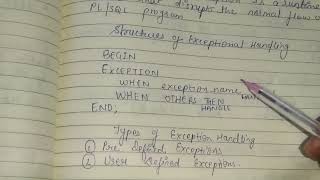 that disrupts the normal flow o
PL/SQL program
Structures of Exceptional Handling
BEGIN
EXCEPTION
WHEN exception name
WHEN OTHERS THEN
HANDLE
END;
Types of Exception Handling
① Pre Defined Exceptions
② User Defined Exceptions.